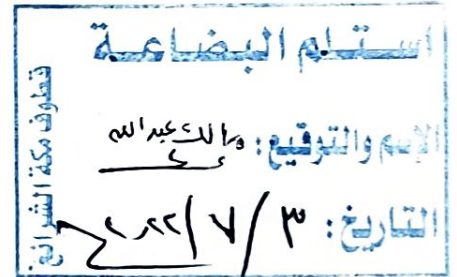 استلم البضاعة
الإسم والتوقيع: مالك عبدالله
التاريخ: ٣ / ٧ / ٢٠٢٢
قطوف مكة الشرائع